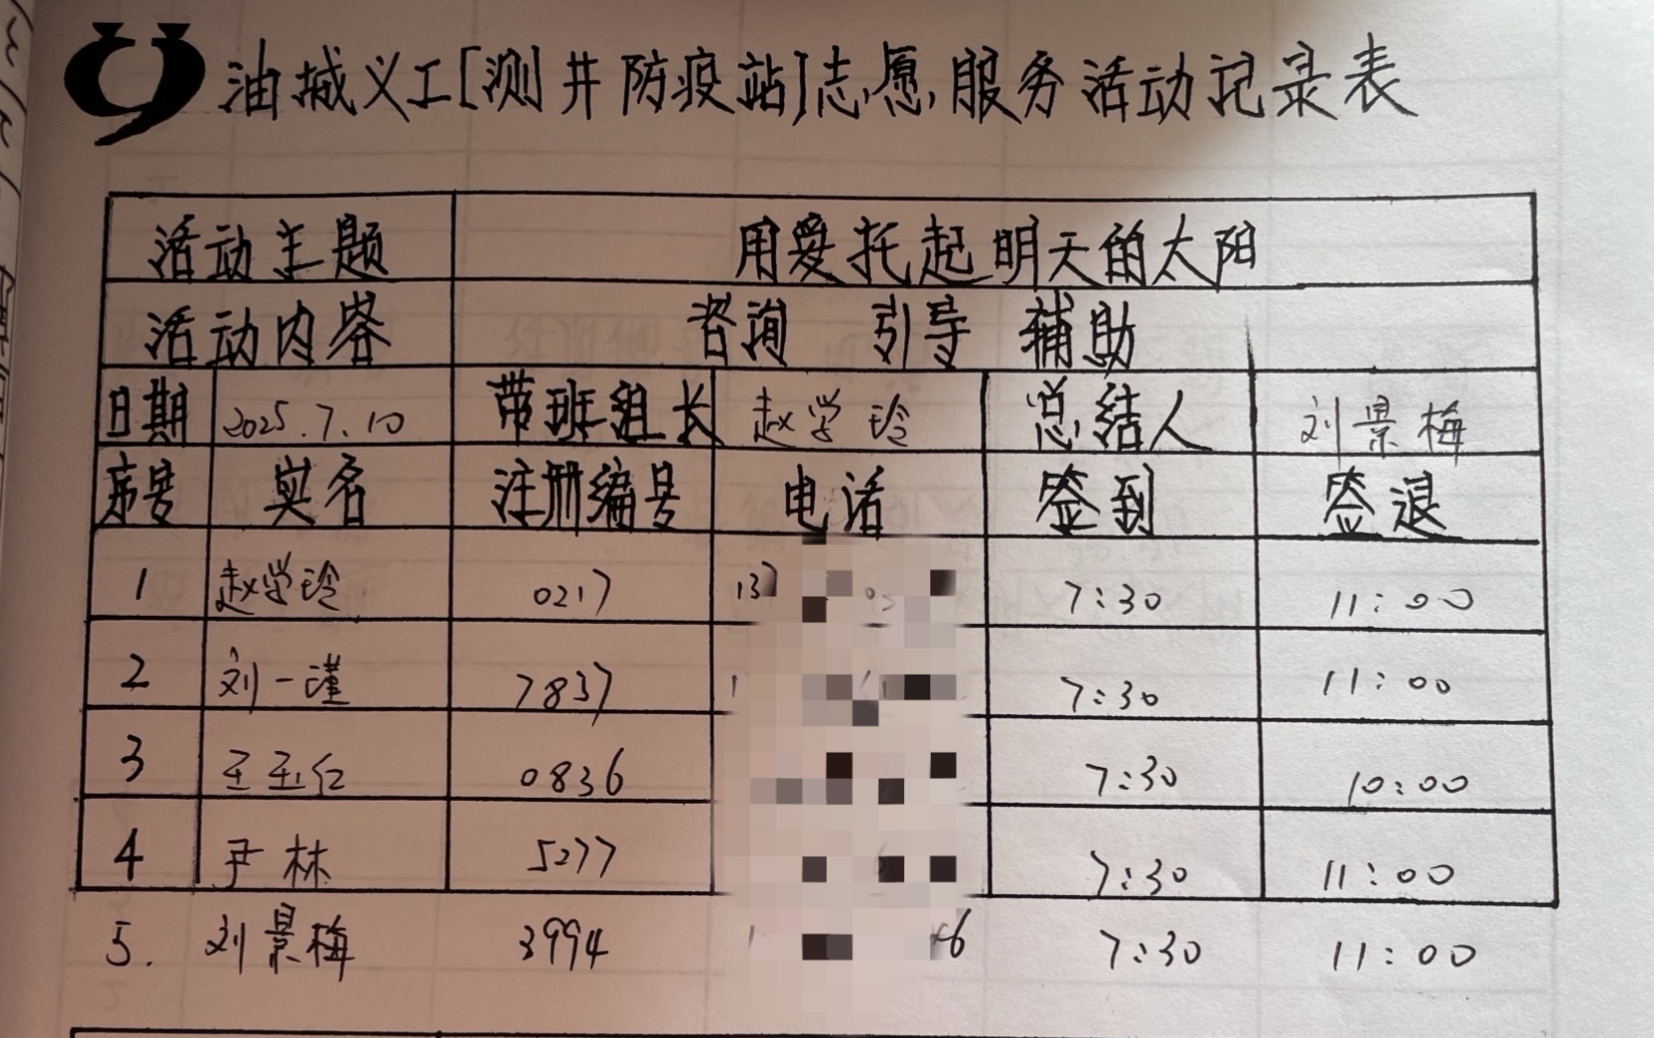 油城义工[测井防疫站]志愿服务活动记录表
活动主题 用爱托起明天的太阳
活动内容 咨询 引导 辅助
日期 2025.7.10 带班组长 赵学玲 总结人 刘景梅
序号 实名 注册编号 电话 签到 签退
1 赵学玲 0217 137 7:30 11:00
2 刘一瑾 7837 1 7:30 11:00
3 王玉红 0836 7:30 10:00
4 尹林 5277 7:30 11:00
5. 刘景梅 3994 1 6 7:30 11:00